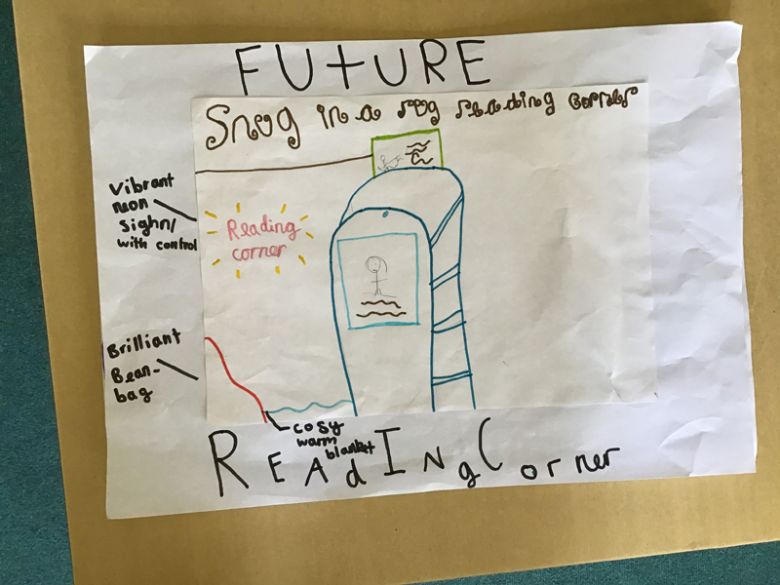 FUtURE
Snug in a rug reading corner
Vibrant
neon
Sighn/
with control
Reading
corner
Brilliant
Bean-
bag
cosy
warm
blanket
REAdINg Corner